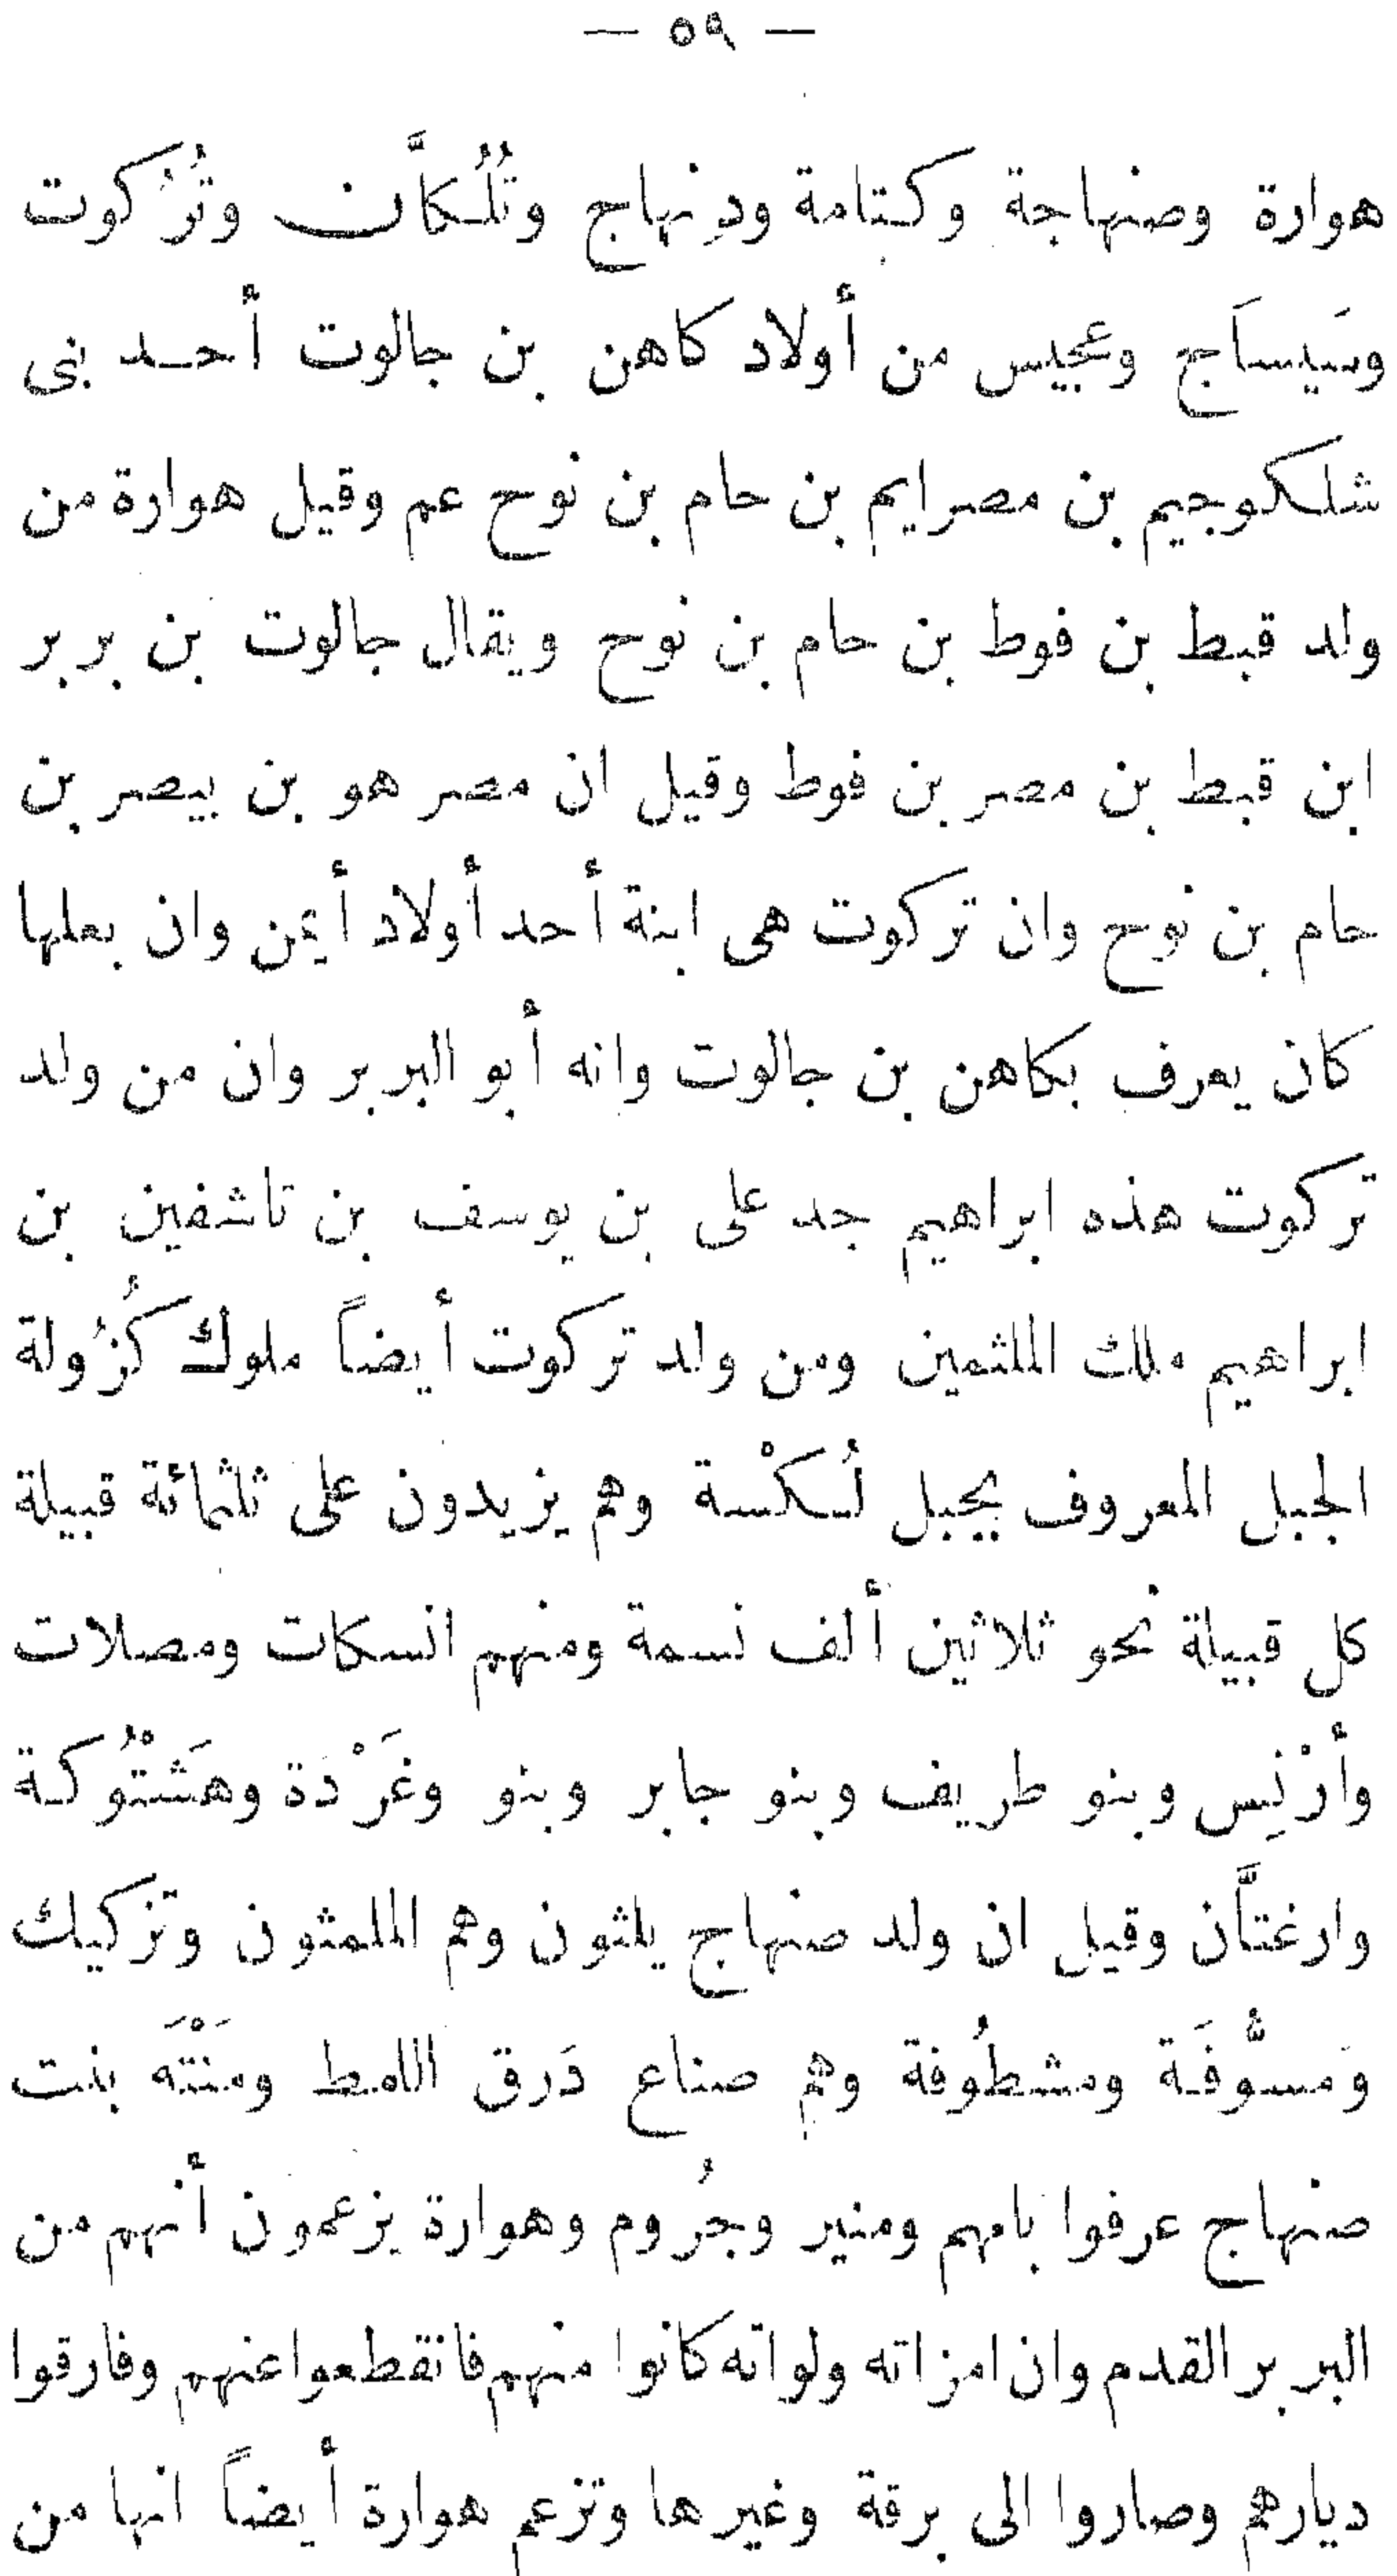 — ٥٩ —
هوارة وصنهاجة وكتامة ودِنهاج وتُلُكَّان وتُرْكوت
وسَيسَاج وعجيس من أولاد كاهن بن جالوت أحد بنى
شلكوجيم بن مصرايم بن حام بن نوح عم وقيل هوارة من
ولد قبط بن فوط بن حام بن نوح ويقال جالوت بن بربر
ابن قبط بن مصر بن فوط وقيل ان مصر هو بن بيصر بن
حام بن نوح وان تركوت هى ابنة أحد أولاد أيمن وان بعلها
كان يعرف بكاهن بن جالوت وانه أبو البربر وان من ولد
تركوت هذه ابراهيم جد على بن يوسف بن تاشفين بن
ابراهيم ملك الملثمين ومن ولد تركوت أيضاً ملوك كُزُولة
الجبل المعروف بجبل لُكْسة وهم يزيدون على ثلثمائة قبيلة
كل قبيلة نحو ثلاثين ألف نسمة ومنهم انسكات ومصلات
وأرْنِس وبنو طريف وبنو جابر وبنو وغَرْدَة وهَشْتُوكة
وارغتَّان وقيل ان ولد صنهاج يلثون وهم الملمثون وتزكيك
وَمسُّوفَة ومشطُوفة وهم صناع دَرق اللمط ومَنْتَه بنت
صنهاج عرفوا بامهم ومنير وجُروم وهوارة يزعمون أنهم من
البربر القدم وان امزاته ولواته كانوا منهم فانقطعوا عنهم وفارقوا
ديارهم وصاروا الى برقة وغيرها وتزعم هوارة أيضاً انها من